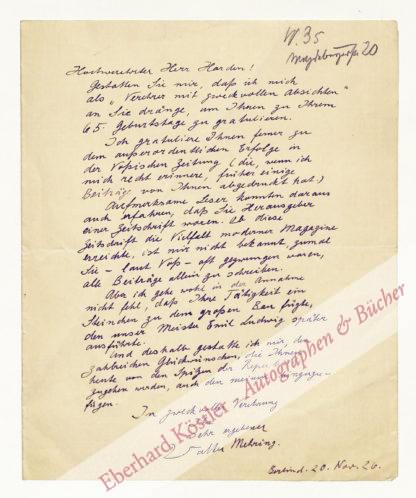 W. 35
Magdeburgerstr 20
Hochverehrter Herr Harden!
Gestatten Sie mir, daß ich mich
als „Verehrer mit zweckvollen Absichten"
an Sie dränge, um Ihnen zu Ihrem
65. Geburtstage zu gratulieren.
Ich gratuliere Ihnen ferner zu
dem außerordentlichen Erfolge in
der Vossischen Zeitung (die, wenn ich
mich recht erinnere, früher einige
Beiträge von Ihnen abgedruckt hat.)
Aufmerksame Leser konnten daraus
auch erfahren, daß Sie Herausgeber
einer Zeitschrift waren. Ob diese
Zeitschrift die Vielfalt moderner Magazine
erreichte, ist mir nicht bekannt, zumal
Sie – laut Voß – oft gezwungen waren,
alle Beiträge allein zu schreiben.
Aber ich gehe wohl in der Annahme
nicht fehl, daß Ihre Tätigkeit ein
Steinchen zu dem großen Bau fügte,
den unser Meister Emil Ludwig später
ausführte.
Und deshalb gestatte ich mir, den
zahlreichen Glückwünschen, die Ihnen
heute von den Spitzen der
zugehen werden, auch den meinen
fügen.
In zweckvoller Verehrung
Sehr ergebener
Walter Mehring.
Berlin d. 20. Nov. 26.
Eberhard Köstler - Autographen & Bücher